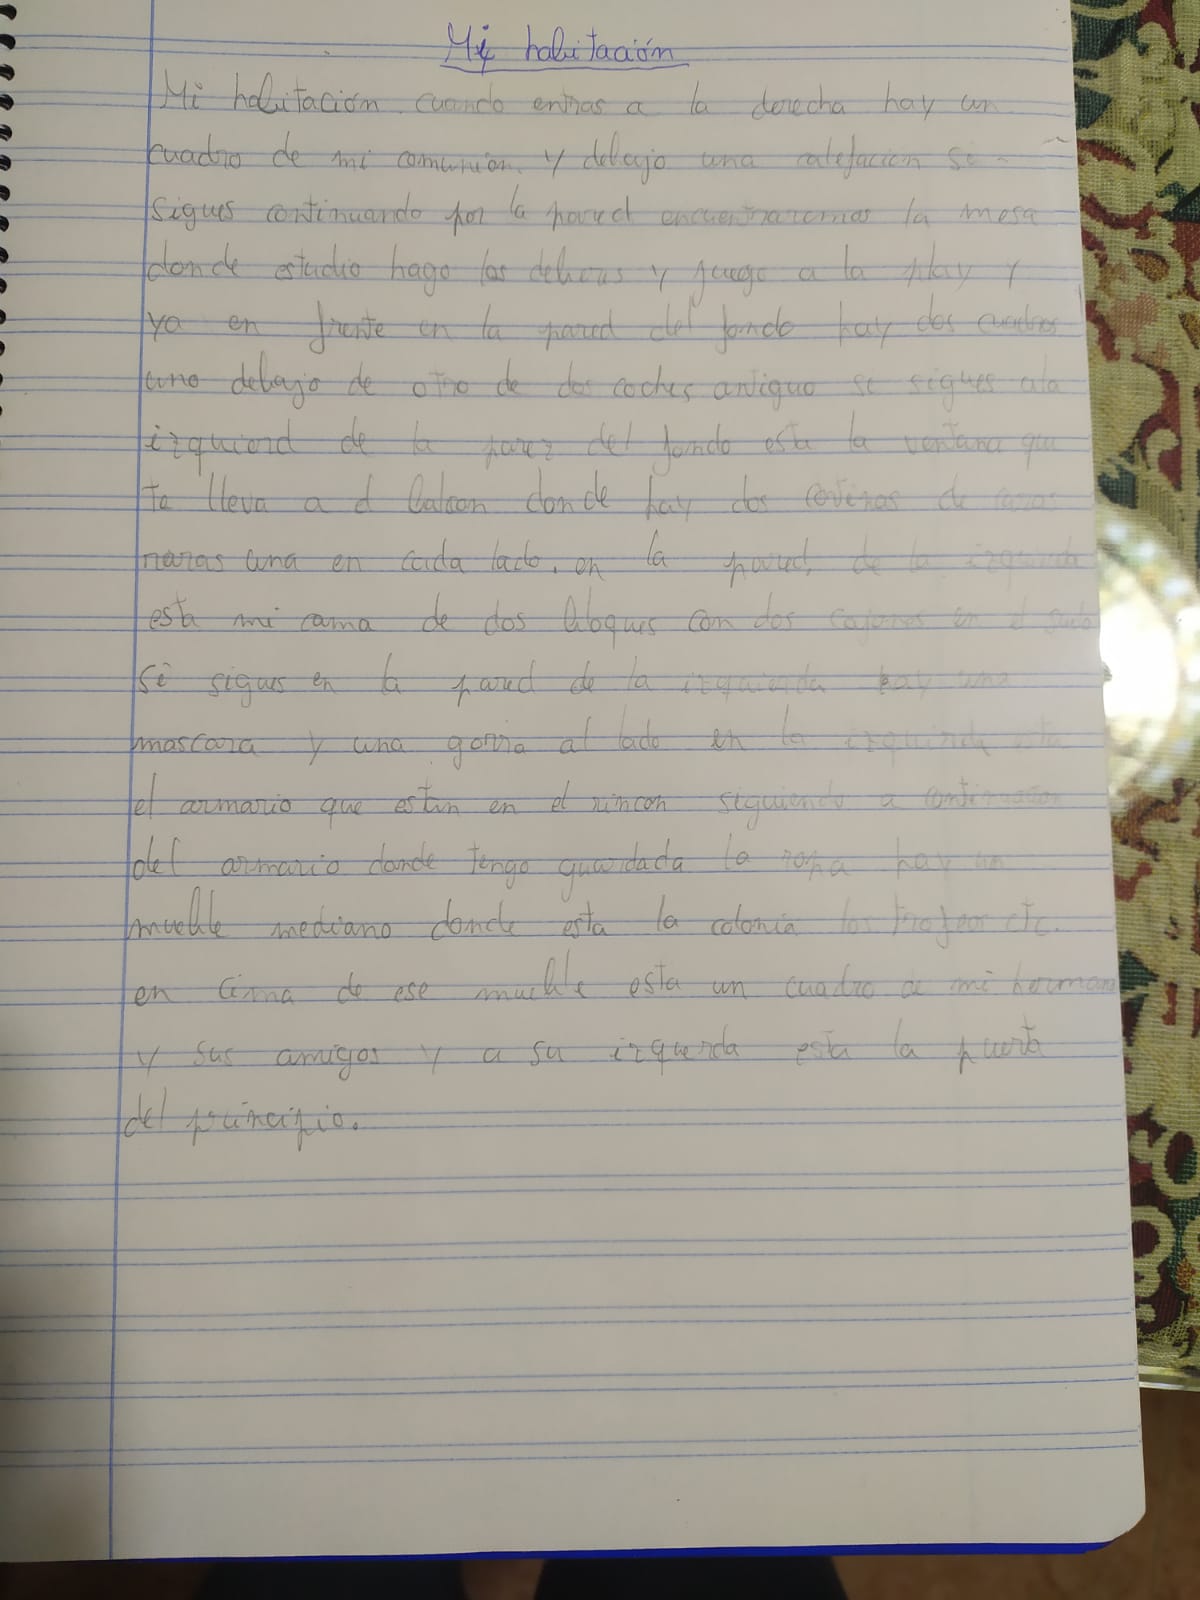 Mi habitación
Mi habitación cuando entras a la derecha hay un
cuadro de mi comunión. y debajo una calefacion si
sigues continuando por la pared encuentraremos la mesa
donde estudio hago los deberes y juego a la play y
ya en frente en la pared del fondo hay dos cuadros
uno debajo de otro de dos coches antiguo se sigues ala
izquierd de la parez del fondo esta la ventana que
te lleva a el balcon donde hay dos cortinas de
naras una en cada lado. en la pared. de la izquierda
esta mi cama de dos bloques con dos cajones en el suelo
si sigues en la pared de la izquierda hay una
mascara y una gorra al lado en la izquierda esta
el armario que estan en el rincon siguiendo a continuacion
del armario donde tengo guardada la ropa hay un
mueble mediano donde esta la colonia los trofeos etc.
en cima de ese mueble esta un cuadro de mi hermano
y sus amigos y a su izquerda esta la puerta
del principio.